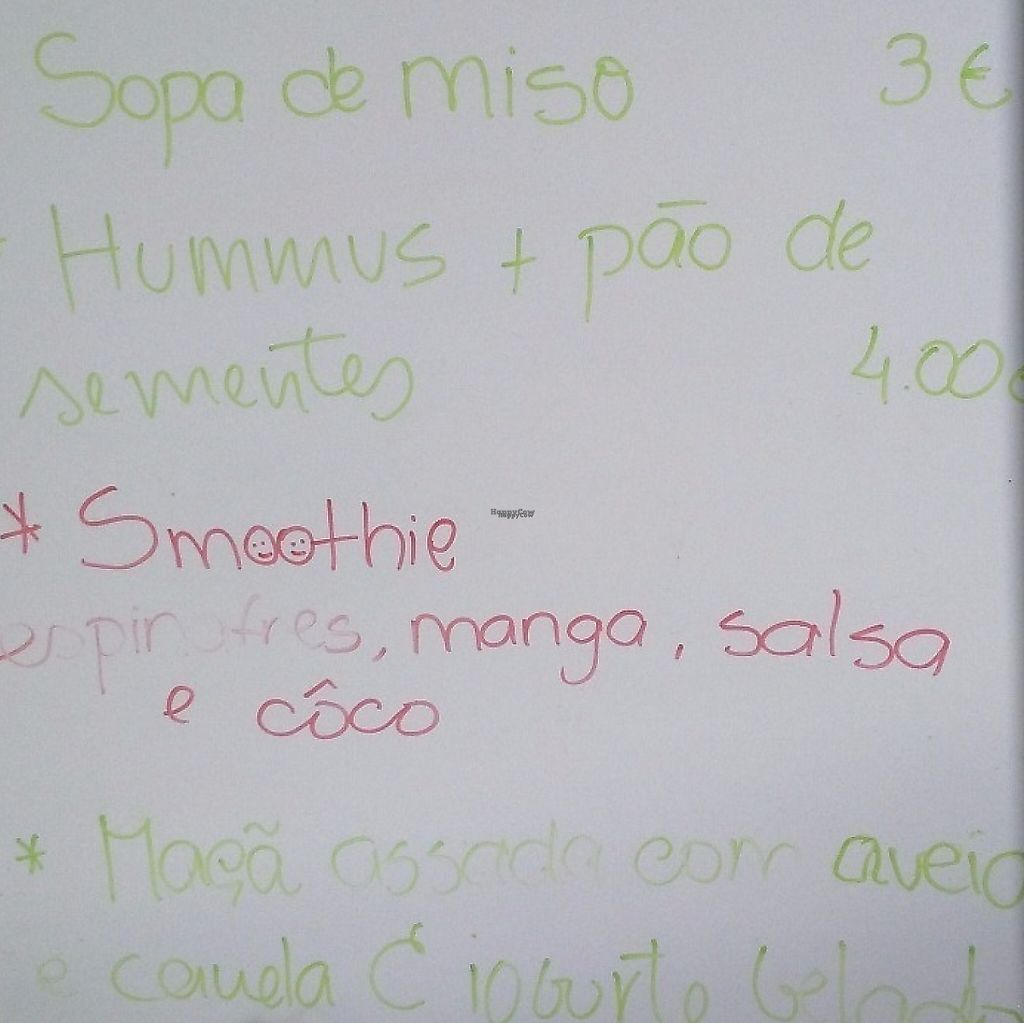 Sopa de miso 3 €
Hummus + pão de
sementes 4.00€
* Smoothie
HappyCow
espinafres, manga, salsa
e côco
* Maçã assada com aveia
e canela C/ iogurte Gelado